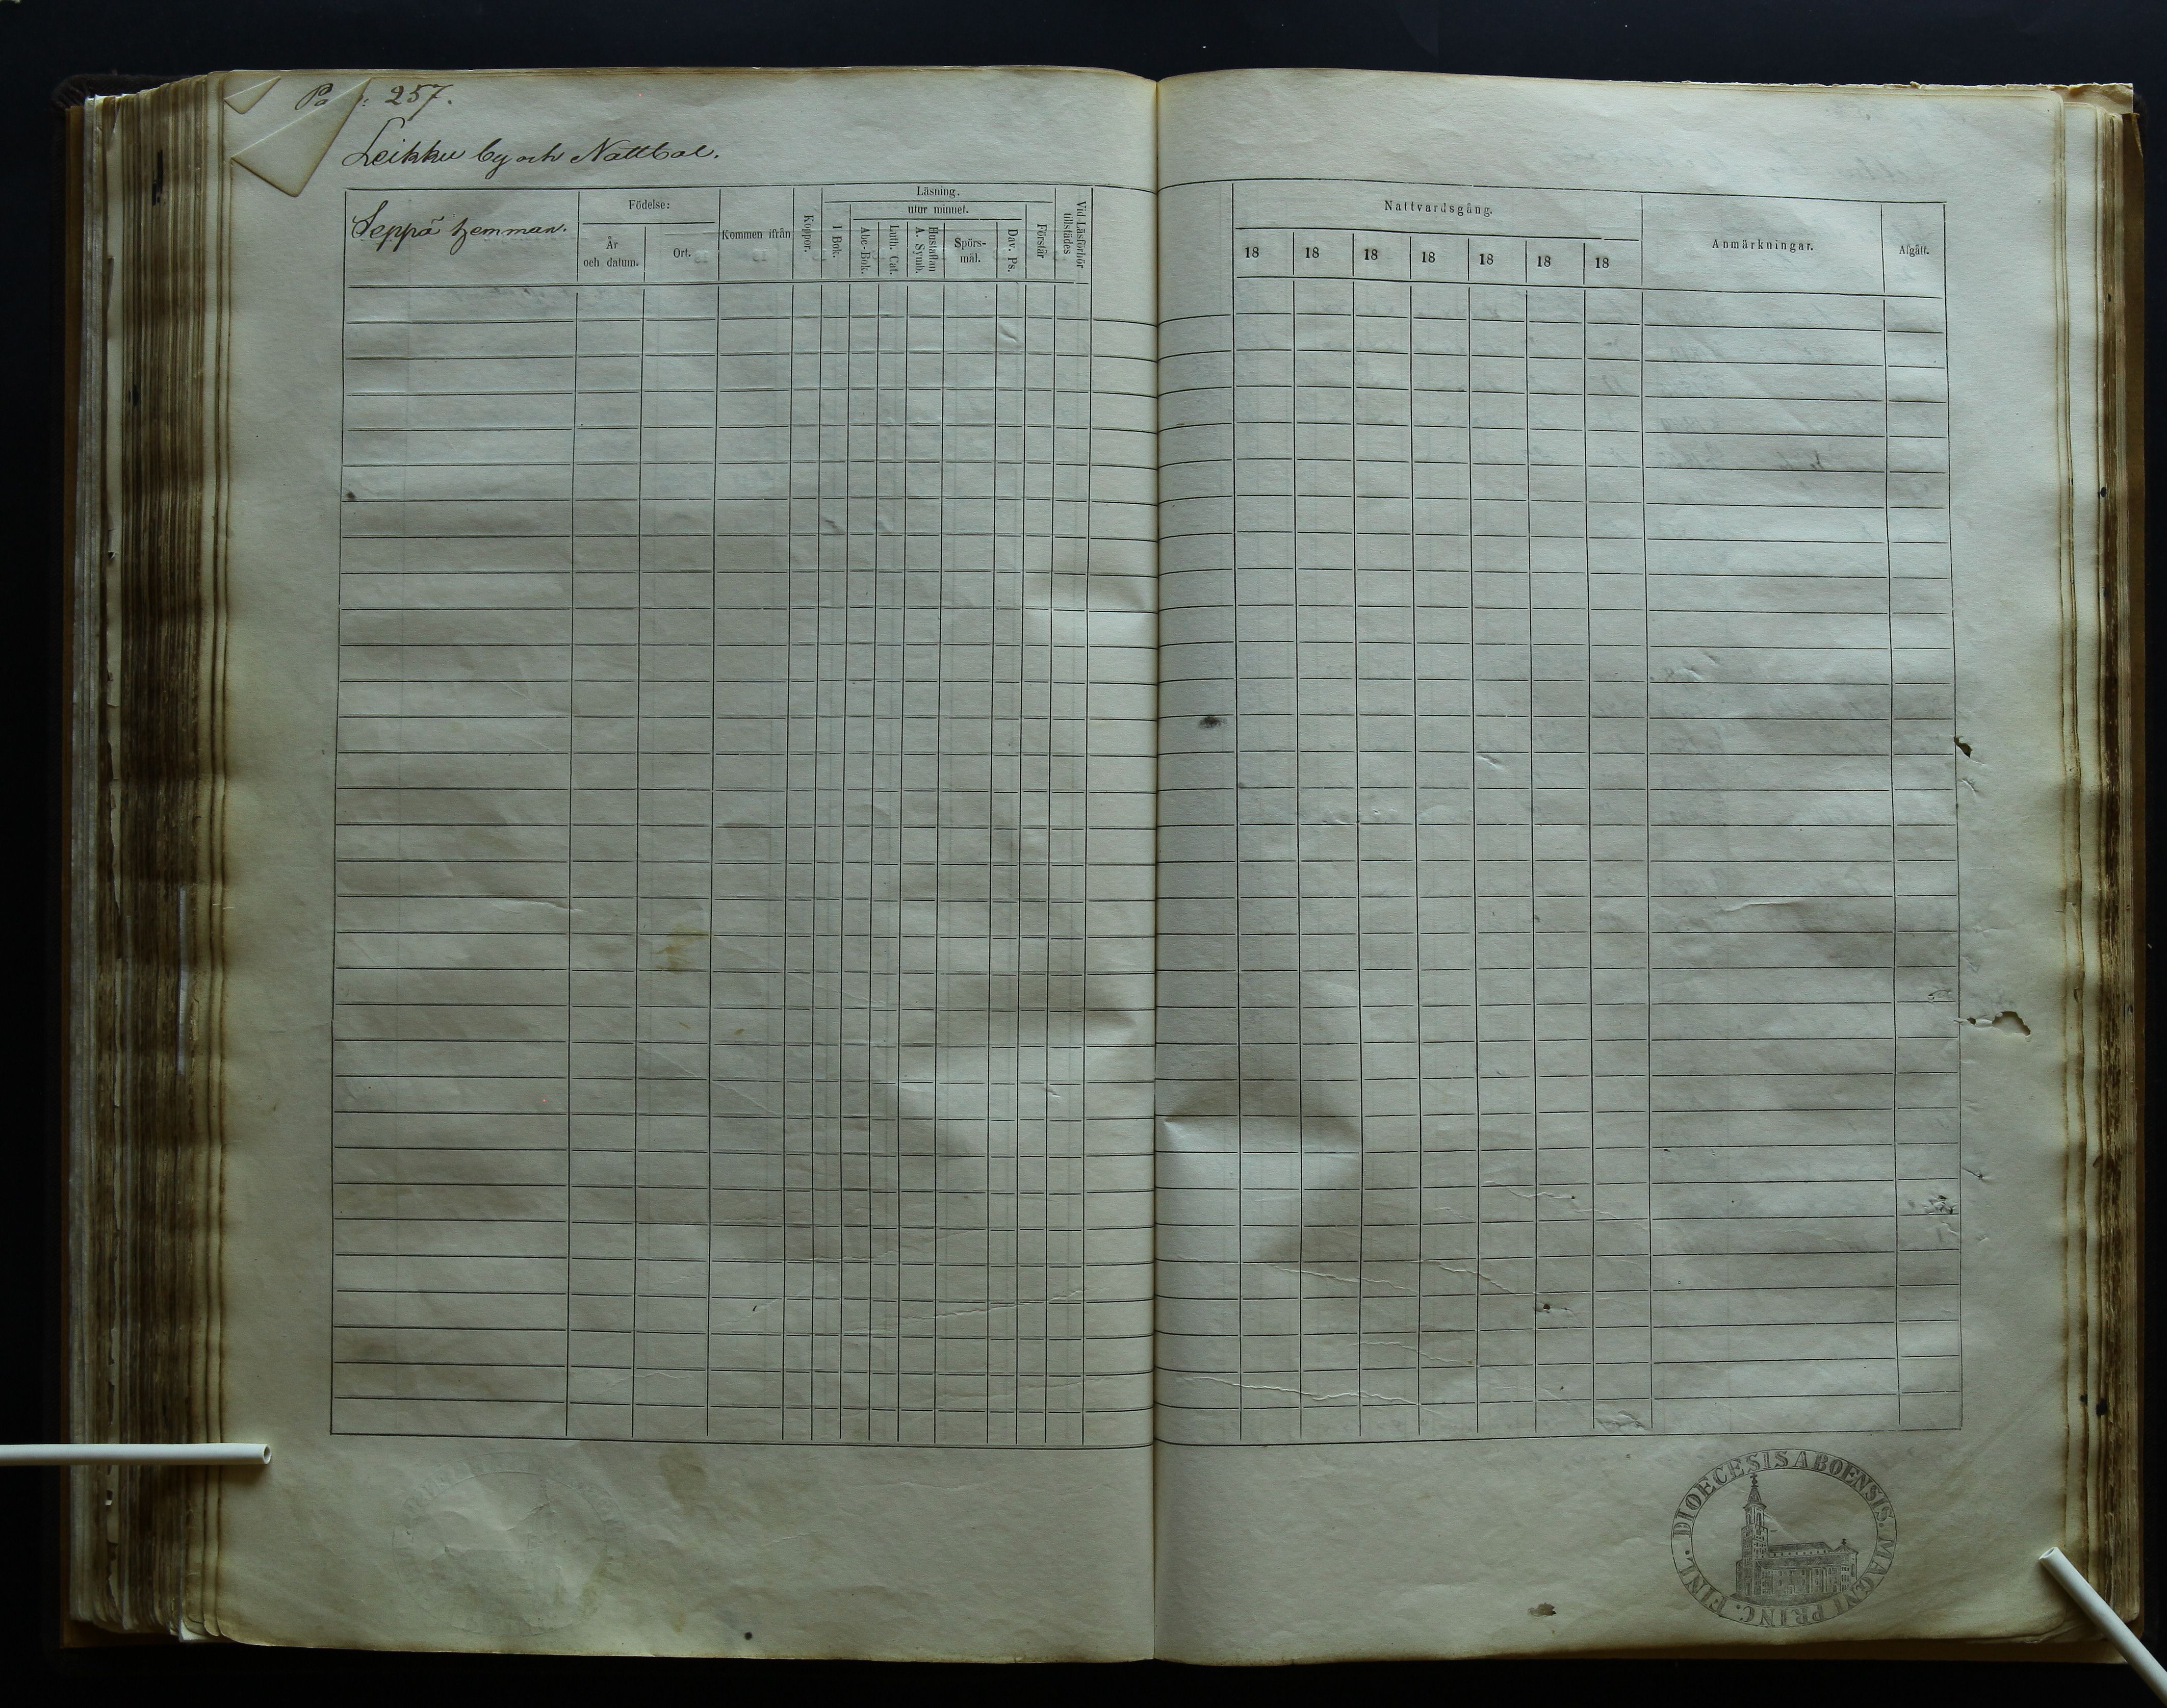 257.
Leikku by och Nattbol.
Seppä hemman.
Födelse:
År
och datum.
Ort.
Kommen ifrån
Koppor.
Läsning.
I Bok.
utur minnet.
Abc-Bok.
Luth. Cat.
Hustaflan
A. Symb.
Spörs-
mål.
Dav. Ps.
Förstår
Vid Läsförhör
tillstädes
Nattvardsgång.
18 18 18 18 18 18 18
Anmärkningar.
Afgått.
DIOECESIS ABOENSIS. MAGNI PRINC. FINL.